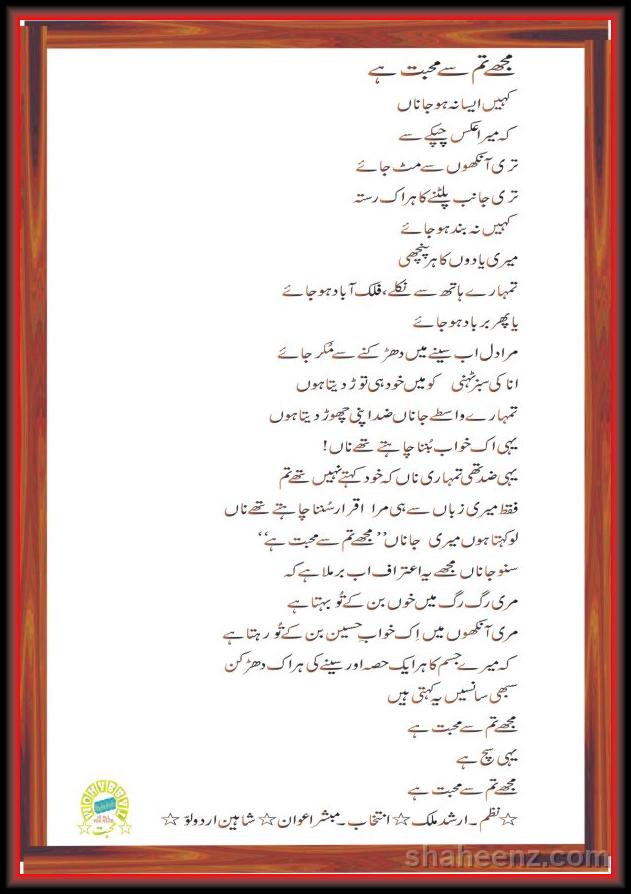 مجھے تم سے محبت ہے
کہیں ایسا نہ ہو جاناں
کہ میرا عکس چپکے سے
تری آنکھوں سے مٹ جائے
تری جانب پلٹنے کا ہر اک رستہ
کہیں نہ بند ہو جائے
میری یادوں کا ہر پنچھی
تمہارے ہاتھ سے نکلے، فلک آباد ہو جائے
یا پھر برباد ہو جائے
مرا دل اب سینے میں دھڑکنے سے مُکر جائے
انا کی سبز ٹہنی کو میں خود ہی توڑ دیتا ہوں
تمہارے واسطے جاناں ضد اپنی چھوڑ دیتا ہوں
یہی اک خواب بُننا چاہتے تھے ناں!
یہی ضد تھی تمہاری ناں کہ خود کہتے نہیں تھے تم
فقط میری زباں سے ہی مرا اقرار سُننا چاہتے تھے ناں
لو کہتا ہوں میری جاناں ’’مجھے تم سے محبت ہے‘‘
سنو جاناں مجھے یہ اعتراف اب برملا ہے کہ
مری رگ رگ میں خوں بن کے تُو بہتا ہے
مری آنکھوں میں اِک خوابِ حسین بن کے تُو رہتا ہے
کہ میرے جسم کا ہر ایک حصہ اور سینے کی ہر اک دھڑکن
سبھی سانسیں یہ کہتی ہیں
مجھے تم سے محبت ہے
یہی سچ ہے
مجھے تم سے محبت ہے
☆ نظم ۔ ارشد ملک ☆ انتخاب ۔ مبشر اعوان ☆ شاہین اردو لوَ ☆
محبت
shaheenz.com